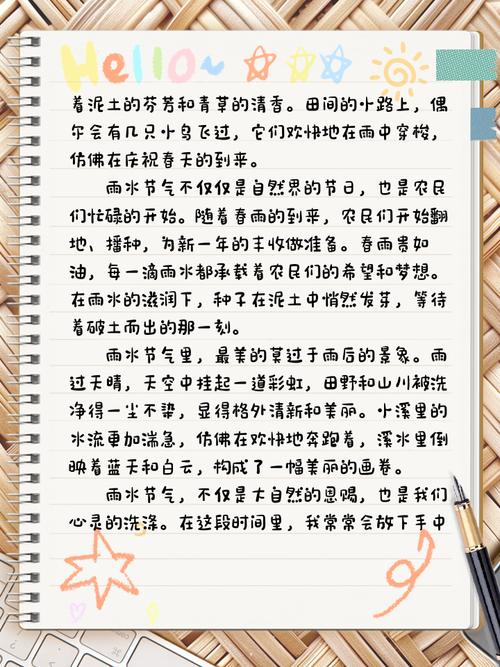 Hello~
着泥土的芬芳和青草的清香。田间的小路上，偶
尔会有几只小鸟飞过，它们欢快地在雨中穿梭，
仿佛在庆祝春天的到来。
雨水节气不仅仅是自然界的节日，也是农民
们忙碌的开始。随着春雨的到来，农民们开始翻
地、播种，为新一年的丰收做准备。春雨贵如
油，每一滴雨水都承载着农民们的希望和梦想。
在雨水的滋润下，种子在泥土中悄然发芽，等待
着破土而出的那一刻。
雨水节气里，最美的莫过于雨后的景象。雨
过天晴，天空中挂起一道彩虹，田野和山川被洗
净得一尘不染，显得格外清新和美丽。小溪里的
水流更加湍急，仿佛在欢快地奔跑着，溪水里倒
映着蓝天和白云，构成了一幅美丽的画卷。
雨水节气，不仅是大自然的恩赐，也是我们
心灵的洗涤。在这段时间里，我常常会放下手中